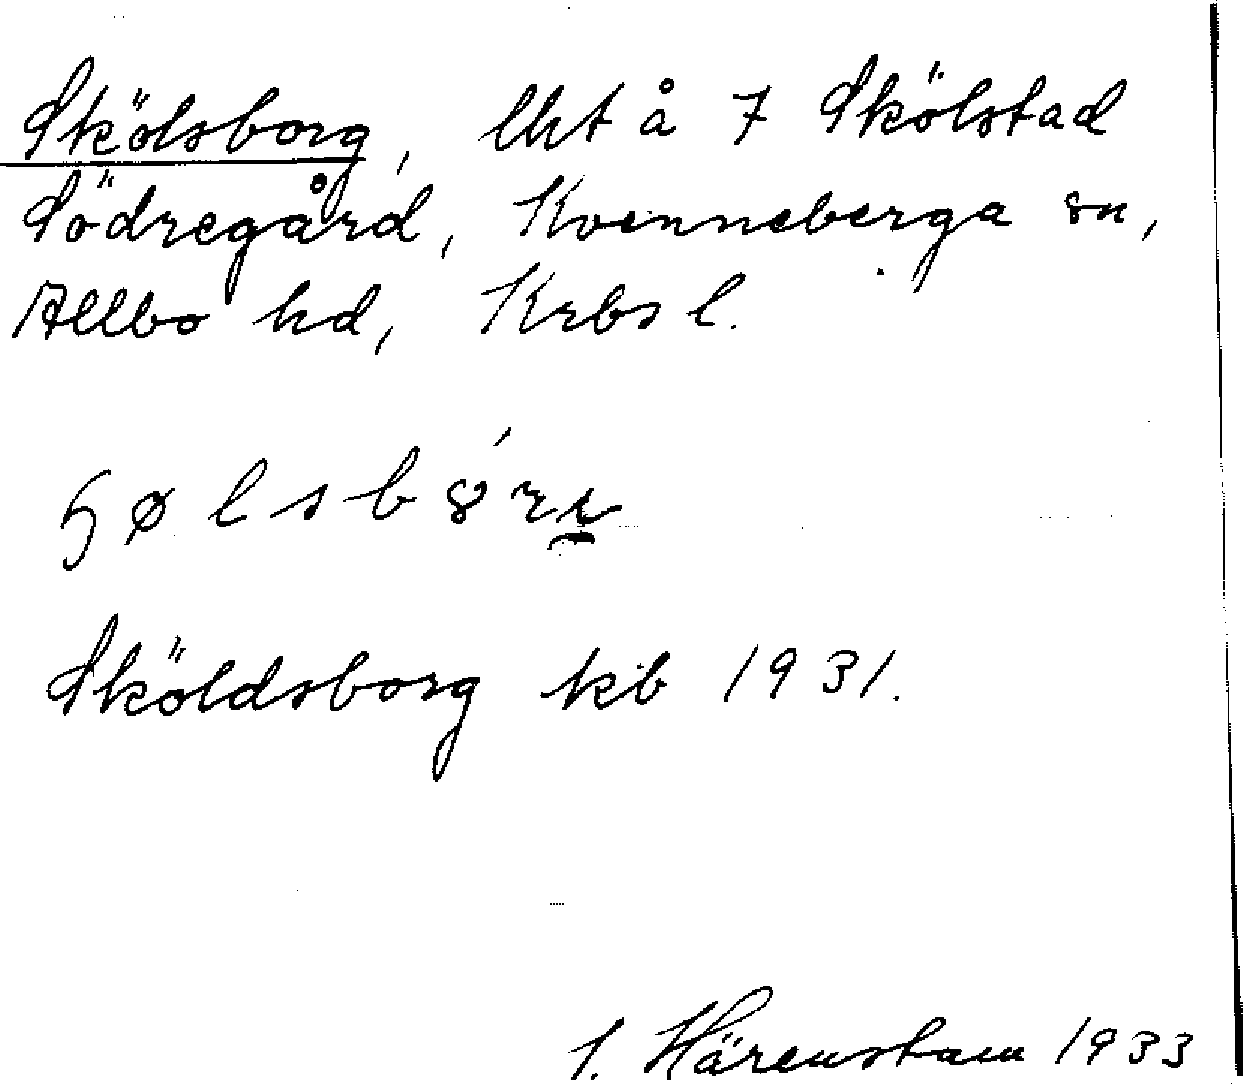 Skölsborg, lht å 7 Skölstad
Södregård, Kvenneberga sn,
Allbo hd, Krbs l.
Sköldsborg kb 1931.
1. Härenstam 1933